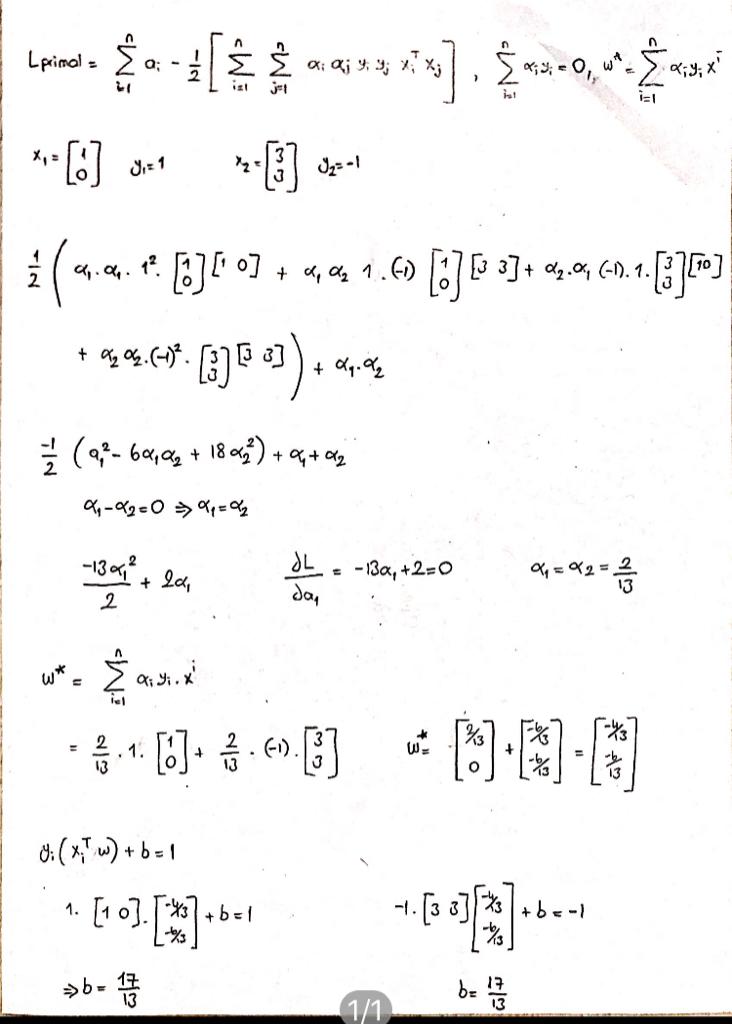 L primal = \sum_{i=1}^{n} a_i - \frac{1}{2} \left[ \sum_{i=1}^{n} \sum_{j=1}^{n} \alpha_i \alpha_j y_i y_j x_i^T x_j \right] , \sum_{i=1}^{n} \alpha_i y_i = 0, w^* = \sum_{i=1}^{n} \alpha_i y_i x^i
x_1 = \begin{bmatrix} 1 \\ 0 \end{bmatrix} y_1 = 1 x_2 = \begin{bmatrix} 3 \\ 3 \end{bmatrix} y_2 = -1
\frac{1}{2} ( \alpha_1 . \alpha_1 . 1^2 . \begin{bmatrix} 1 \\ 0 \end{bmatrix} [1 0] + \alpha_1 \alpha_2 1 . (-1) \begin{bmatrix} 1 \\ 0 \end{bmatrix} [3 3] + \alpha_2 . \alpha_1 (-1) . 1 . \begin{bmatrix} 3 \\ 3 \end{bmatrix} [1 0]
+ \alpha_2 \alpha_2 . (-1)^2 . \begin{bmatrix} 3 \\ 3 \end{bmatrix} [3 3] ) + \alpha_1 . \alpha_2
\frac{-1}{2} ( \alpha_1^2 - 6 \alpha_1 \alpha_2 + 18 \alpha_2^2 ) + \alpha_1 + \alpha_2
\alpha_1 - \alpha_2 = 0 \Rightarrow \alpha_1 = \alpha_2
\frac{-13 \alpha_1^2}{2} + 2 \alpha_1 \frac{\partial L}{\partial a_1} = -13 \alpha_1 + 2 = 0 \alpha_1 = \alpha_2 = \frac{2}{13}
w^* = \sum_{i=1}^{n} \alpha_i y_i . x^i
= \frac{2}{13} . 1 . \begin{bmatrix} 1 \\ 0 \end{bmatrix} + \frac{2}{13} . (-1) . \begin{bmatrix} 3 \\ 3 \end{bmatrix} w^* = \begin{bmatrix} 2/13 \\ 0 \end{bmatrix} + \begin{bmatrix} -6/13 \\ -6/13 \end{bmatrix} = \begin{bmatrix} -4/13 \\ -6/13 \end{bmatrix}
y_i ( x_i^T w ) + b = 1
1. [1 0] . \begin{bmatrix} -4/13 \\ -6/13 \end{bmatrix} + b = 1 -1. [3 3] \begin{bmatrix} -4/13 \\ -6/13 \end{bmatrix} + b = -1
\Rightarrow b = \frac{17}{13} b = \frac{17}{13}
1/1